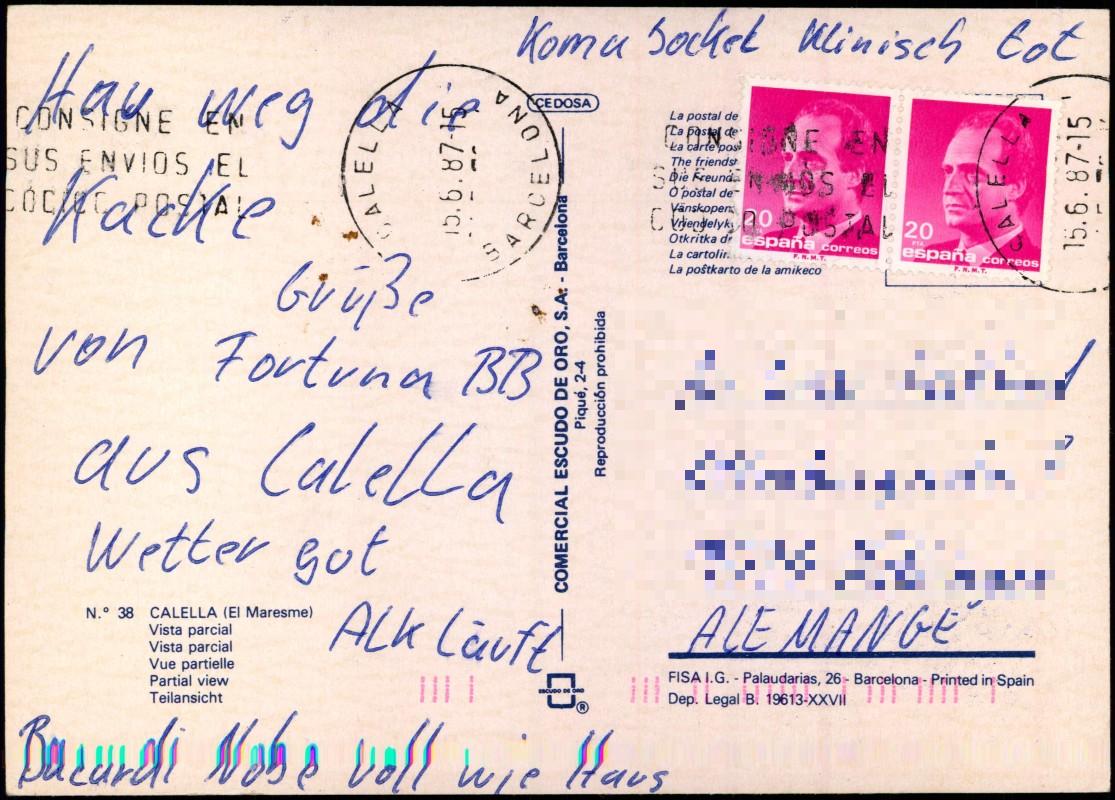 Koma Socket Klinisch tot
Hau weg die
Kacke
Grüße
von Fortuna BB
aus Calella
Wetter got
ALK Läuft
Bacardi Nobe voll wie Haus
CONSIGNE EN
SUS ENVIOS EL
CODIGO POSTAL
CALELLA
15.6.87-15
BARCELONA
CEDOSA
COMERCIAL ESCUDO DE ORO, S.A. - Barcelona
Piqué, 2-4
Reproducción prohibida
La postal de
La postal de
La carte pos
The friends
Die Freund
O postal de
Vänskapen
Vriendelyk
Otkritka dr
La cartolin
La poŝtkarto de la amikeco
CONSIGNE EN
SUS ENVIOS EL
POSTAL
20
PTA
españa correos
F.N.M.T.
20
PTA
españa correos
F.N.M.T.
CALELLA
15.6.87-15
ALEMANGE
N.º 38 CALELLA (El Maresme)
Vista parcial
Vista parcial
Vue partielle
Partial view
Teilansicht
ESCUDO DE ORO
®
FISA I.G. - Palaudarias, 26 - Barcelona - Printed in Spain
Dep. Legal B. 19613-XXVII